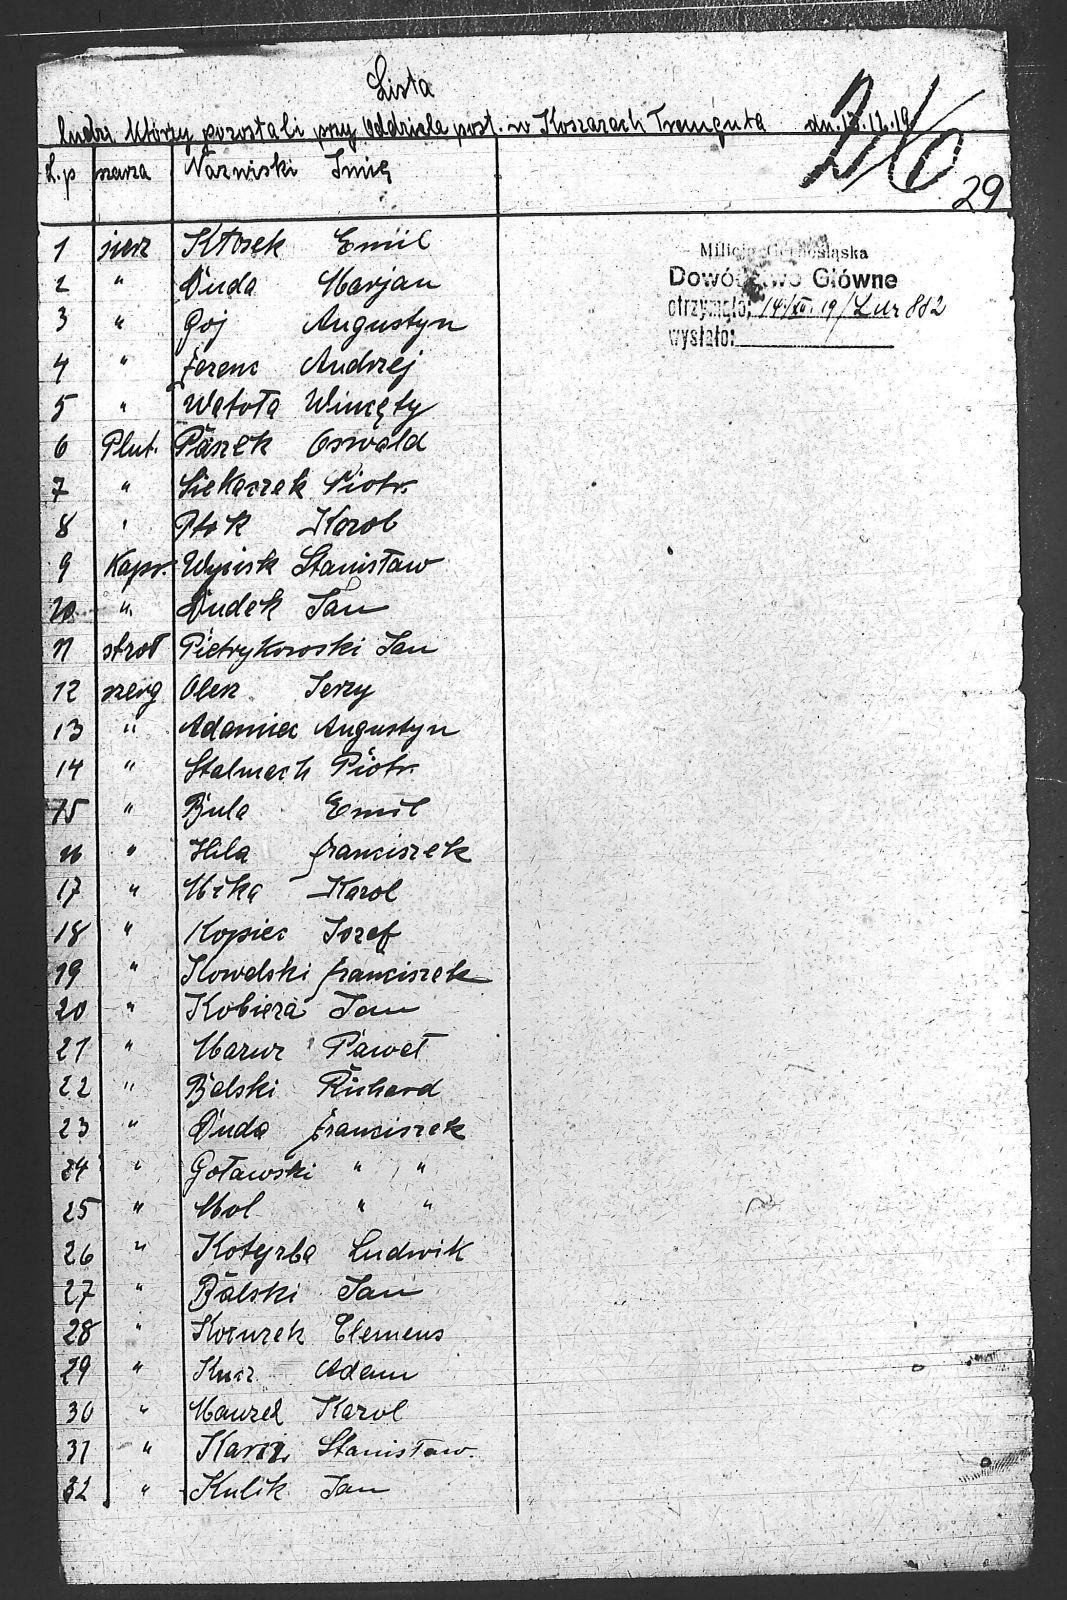 Lista
ludzi którzy pozostali przy Oddziale post. w Koszarach Traugutta dn. 13.12.19
26
29
L.p szarża Nazwiski Imię
Milicja Górnośląska
Dowództwo Główne
otrzymało: 14/XII. 19 / L.nr 882
wysłało:
1 sierż Kłosek Emil
2 " Duda Marjan
3 " Goj Augustyn
4 " Ferenc Andrzej
5 " Watoła Wincęty
6 Plut. Paszek Oswald
7 " Siekaczek Piotr.
8 " Ptok Karol
9 Kapr. Wycisk Stanisław
10 " Dudek Jan
11 st.żoł Pietrykowski Jan
12 szerg Olesz Jerzy
13 " Adamiec Augustyn
14 " Stalmach Piotr.
15 " Bula Emil
16 " Hila Franciszek
17 " Mika Karol
18 " Kopiec Jozef
19 " Kowalski Franciszek
20 " Kobiera Jan
21 " Marur Paweł
22 " Belski Richard
23 " Duda Franciszek
24 " Goławski " "
25 " Mol " "
26 " Kotyrba Ludwik
27 " Balski Jan
28 " Koczurek Clemens
29 " Kucz Adam
30 " Maurer Karol
31 " Stanisław.
32 " Kulik Jan